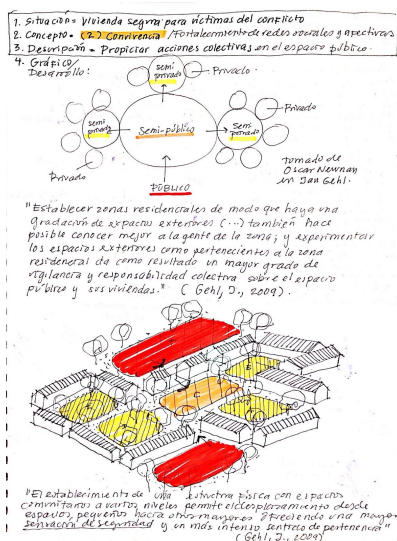 1. Situación = Vivienda segura para víctimas del conflicto
2. Concepto = (2) Convivencia / Fortalecimiento de redes sociales y afectivas
3. Descripción = Propiciar acciones colectivas en el espacio público.
4. Gráfico/
Desarrollo:
semi
privado
Privado
semi
privado
Semi-público
semi
privado
Privado
Privado
PÚBLICO
tomado de
Oscar Newman
en Jan Gehl.
"Establecer zonas residenciales de modo que haya una
gradación de espacios exteriores (...) también hace
posible conocer mejor a la gente de la zona; y experimentar
los espacios exteriores como pertenecientes a la zona
residencial da como resultado un mayor grado de
vigilancia y responsabilidad colectiva sobre el espacio
público y sus viviendas." (Gehl, J., 2009).
"El establecimiento de una estructura física con espacios
comunitarios a varios niveles permite el desplazamiento desde
espacios pequeños hacia otros mayores ofreciendo una mayor
sensación de seguridad y un más intenso sentido de pertenencia"
(Gehl, J., 2009)